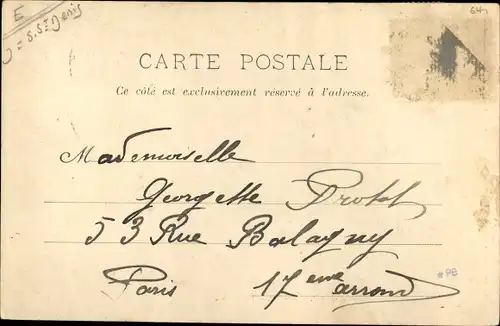 E
S. St Denis
64
CARTE POSTALE
Ce côté est exclusivement réservé à l'adresse.
Mademoiselle
Georgette Protet
53 Rue Balagny
Paris 17eme arrond
*PB